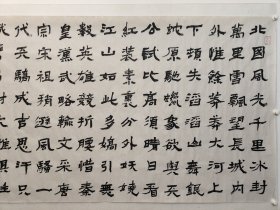 北國風光千里冰封
萬里雪飄望長城內
外惟餘莽莽大河上
下頓失滔滔山舞銀
蛇原馳蠟象欲與天
公試比高須晴日看
紅裝素裹分外妖嬈
江山如此多嬌引無
數英雄競折腰惜秦
皇漢武略輸文采唐
宗宋祖稍遜風騷一
代天驕成吉思汗只
識彎弓射大雕俱往